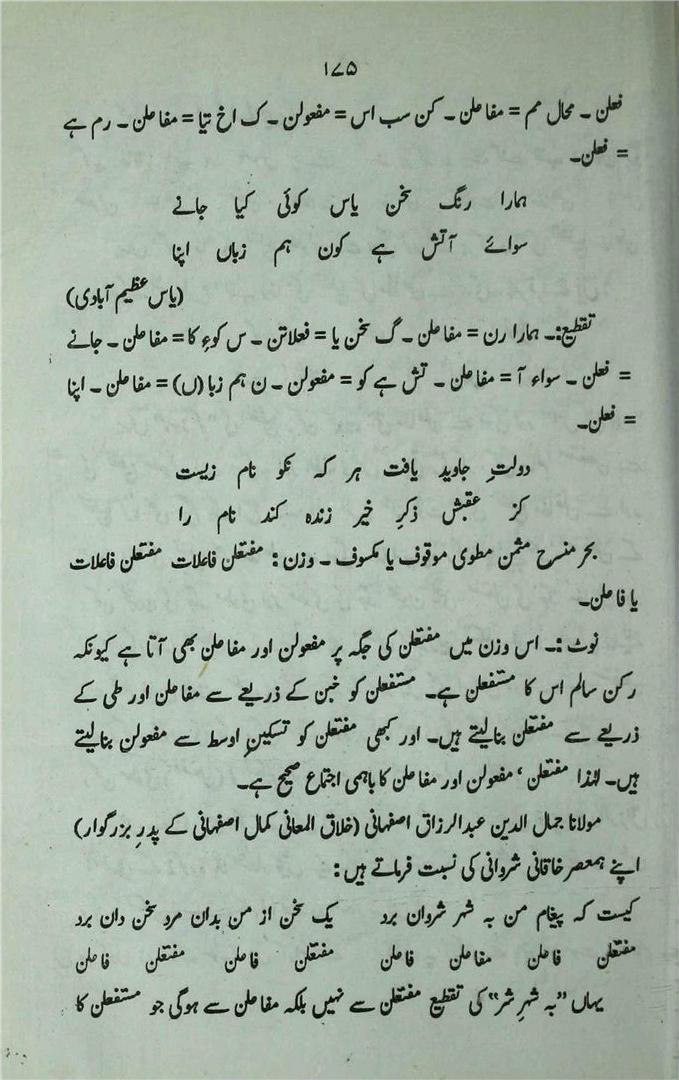 ۱۷۵
فعلن ۔ محال مم = مفاعلن ۔ کن سب اس = مفعولن ۔ ک اخ تیا = مفاعلن ۔ رم ہے
= فعلن۔
ہمارا رنگ سخن یاس کوئی کیا جانے
سوائے آتش ہے کون ہم زباں اپنا
(یاس عظیم آبادی)
تقطیع:۔ ہمارا رن = مفاعلن ۔ گ سخن یا = فعلاتن ۔ س کوءِ کا = مفاعلن ۔ جانے
= فعلن ۔ سواء آ = مفاعلن ۔ تش ہے کو = مفعولن ۔ ن ہم زبا (ں) = مفاعلن ۔ اپنا
= فعلن۔
دولتِ جاوید یافت ہر کہ نکو نام زیست
کز عقبش ذکرِ خیر زندہ کند نام را
بحر منسرح مثمن مطوی موقوف یا مکسوف ۔ وزن : مفتعلن فاعلات مفتعلن فاعلات
یا فاعلن۔
نوٹ :۔ اس وزن میں مفتعلن کی جگہ پر مفعولن اور مفاعلن بھی آتا ہے کیونکہ
رکن سالم اس کا مستفعلن ہے۔ مستفعلن کو خبن کے ذریعے سے مفاعلن اور طی کے
ذریعے سے مفتعلن بنالیتے ہیں۔ اور کبھی مفتعلن کو تسکینِ اوسط سے مفعولن بنالیتے
ہیں۔ لہٰذا مفتعلن‘ مفعولن اور مفاعلن کا باہمی اجتماع صحیح ہے۔
مولانا جمال الدین عبدالرزاق اصفہانی (خلاق المعانی کمال اصفہانی کے پدرِ بزرگوار)
اپنے ہمعصر خاقانی شروانی کی نسبت فرماتے ہیں :
کیست کہ پیغام من بہ شہر شروان برد یک سخن از من بدان مرد سخن دان برد
مفتعلن فاعلن مفاعلن فاعلن مفتعلن فاعلن مفتعلن فاعلن
یہاں ”بہ شہرِ شر“ کی تقطیع مفتعلن سے نہیں بلکہ مفاعلن سے ہوگی جو مستفعلن کا